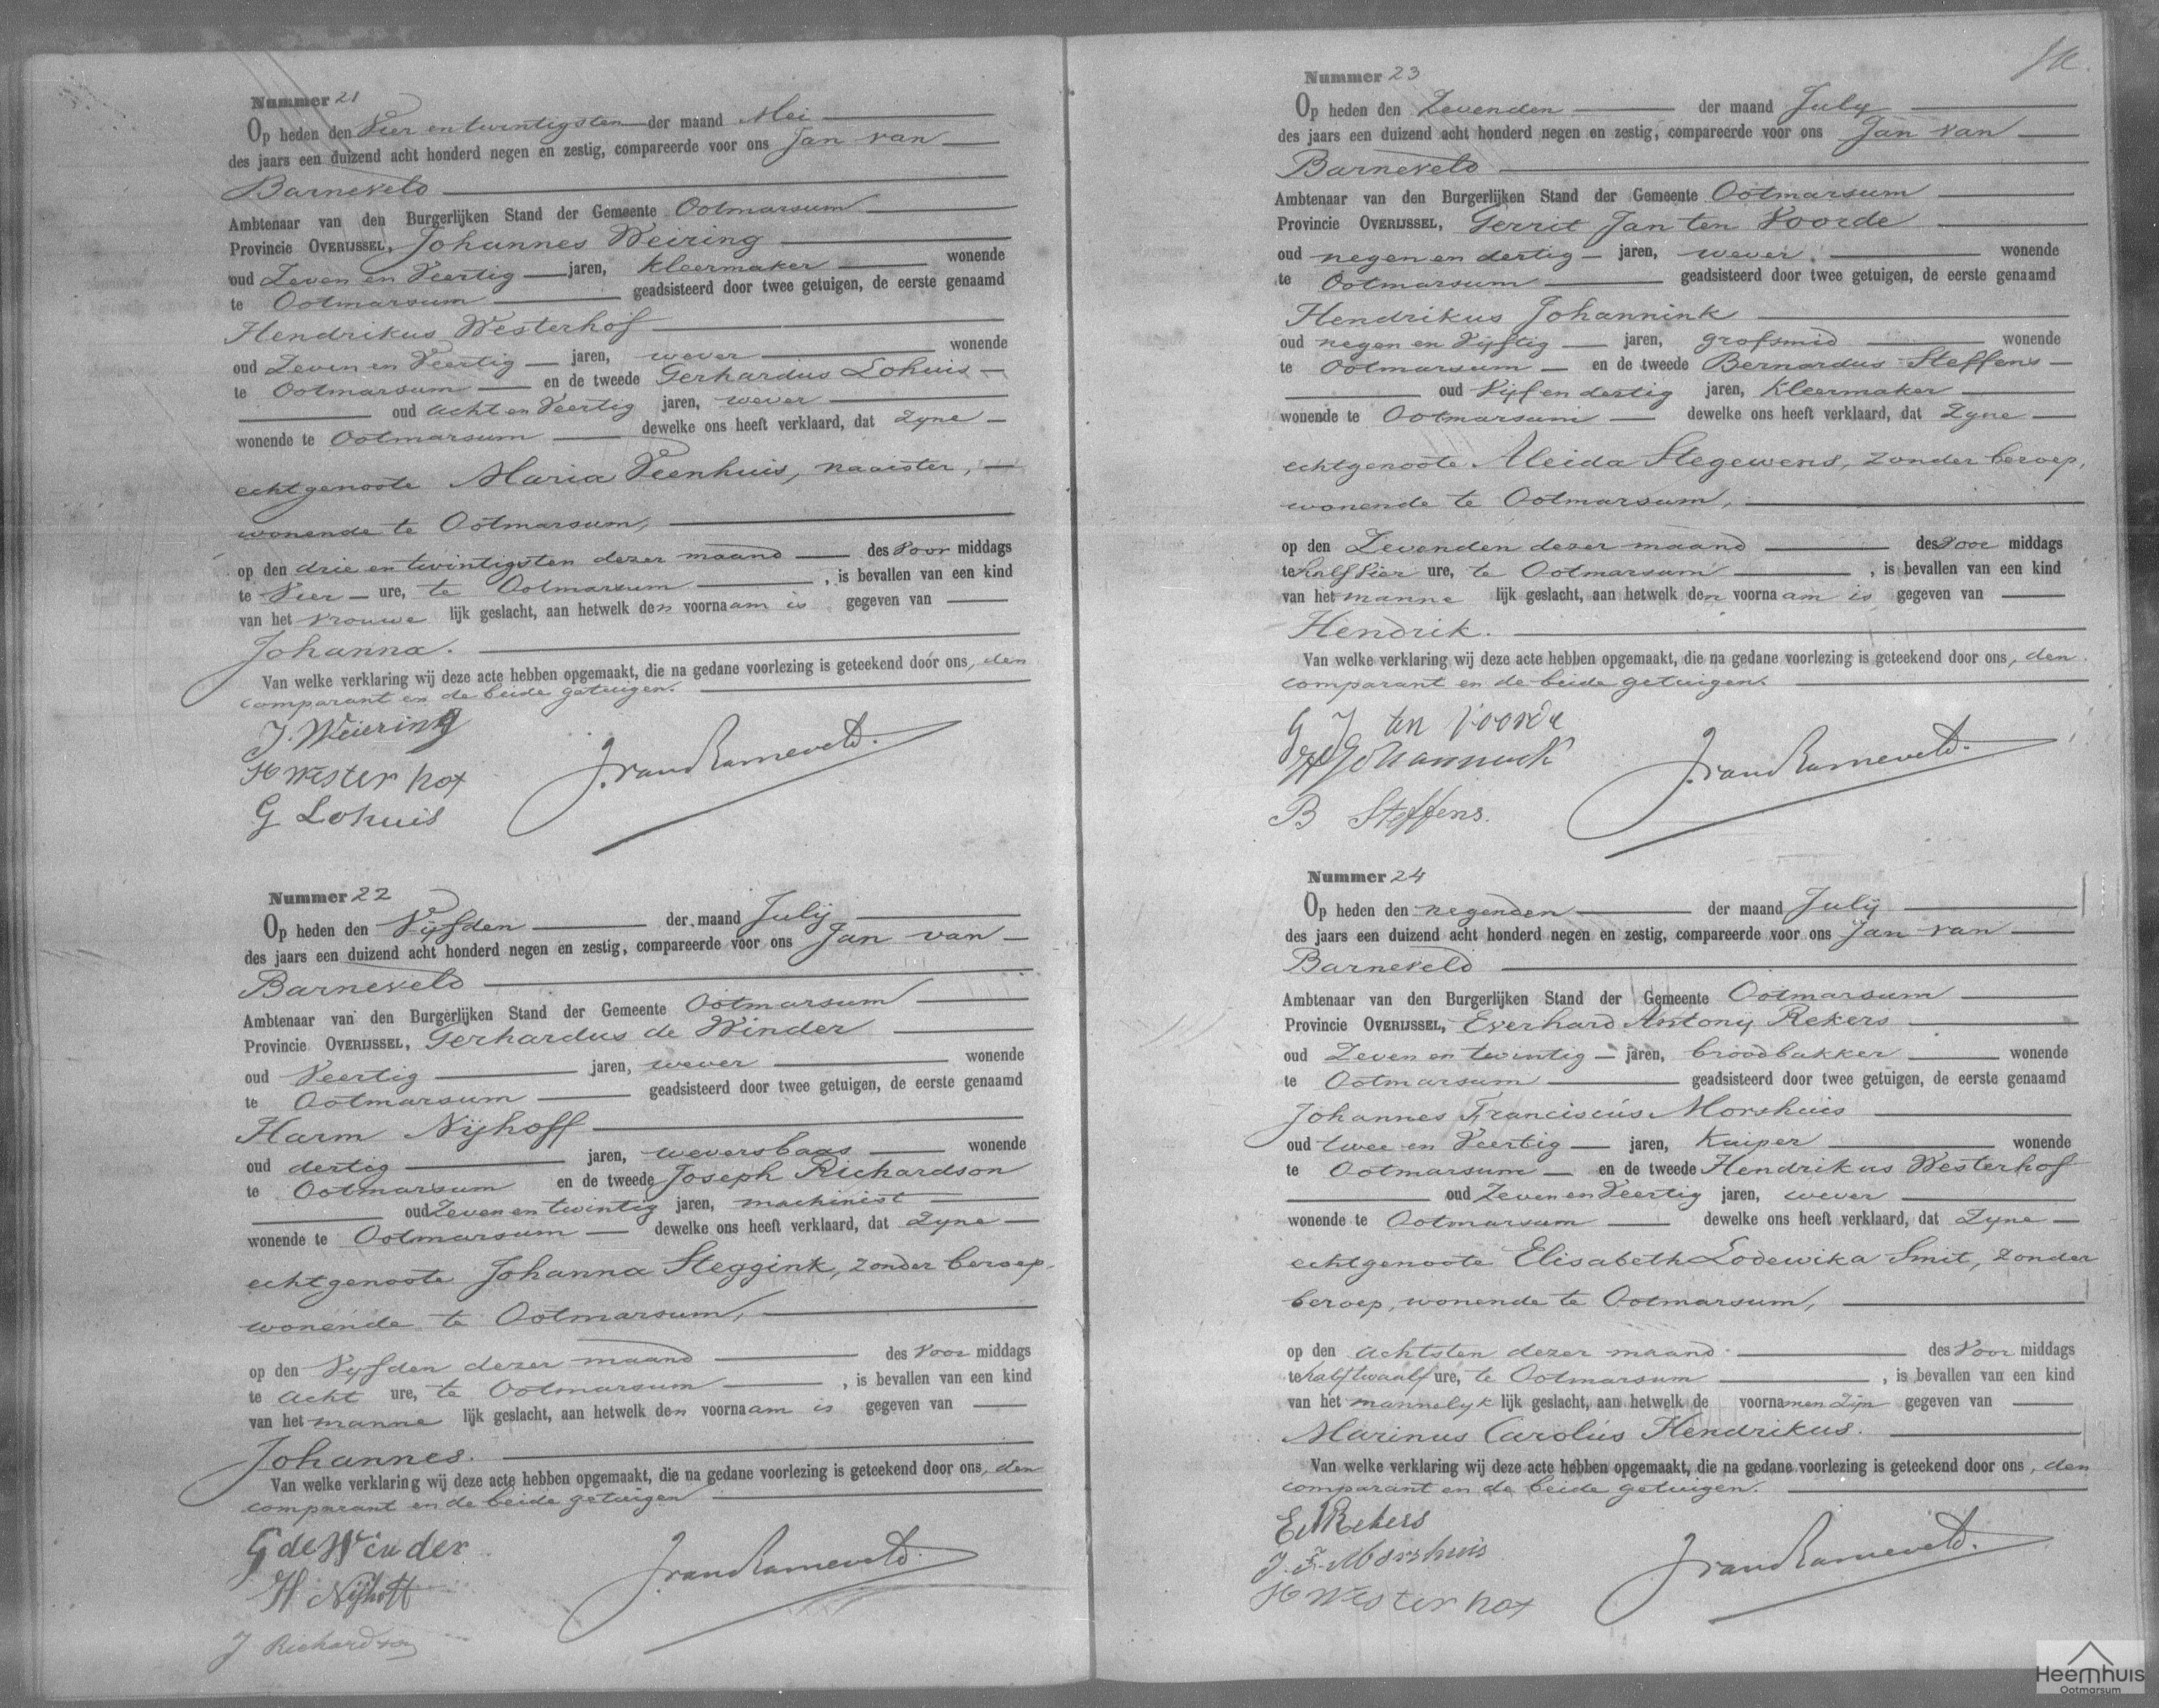 Nummer 21
Op heden den Vier en twintigsten der maand Mei
des jaars een duizend acht honderd negen en zestig, compareerde voor ons Jan van
Barneveld
Ambtenaar van den Burgerlijken Stand der Gemeente Ootmarsum
Provincie OVERIJSSEL, Johannes Weiring
oud Zeven en Veertig jaren, kleermaker wonende
te Ootmarsum geadsisteerd door twee getuigen, de eerste genaamd
Hendrikus Westerhof
oud Zeven en Veertig jaren, wever wonende
te Ootmarsum en de tweede Gerhardus Lohuis
oud acht en Veertig jaren, wever
wonende te Ootmarsum dewelke ons heeft verklaard, dat Zyne
echtgenoote Maria Veenhuis, naaister,
wonende te Ootmarsum,
op den drie en twintigsten dezer maand des Voor middags
te Vier ure, te Ootmarsum, is bevallen van een kind
van het vrouwe lijk geslacht, aan hetwelk den voornaam is gegeven van
Johanna.
Van welke verklaring wij deze acte hebben opgemaakt, die na gedane voorlezing is geteekend door ons, den
comparant en de beide getuigen.
J. Weiering
H Wester hof
G Lohuis
J. van Barneveld.
Nummer 22
Op heden den Vyfden der maand July
des jaars een duizend acht honderd negen en zestig, compareerde voor ons Jan van
Barneveld
Ambtenaar van den Burgerlijken Stand der Gemeente Ootmarsum
Provincie OVERIJSSEL, Gerhardus de Winder
oud Veertig jaren, wever wonende
te Ootmarsum geadsisteerd door twee getuigen, de eerste genaamd
Harm Nijhoff
oud dertig jaren, weversbaas wonende
te Ootmarsum en de tweede Joseph Richardson
oud Zeven en twintig jaren, machinist
wonende te Ootmarsum dewelke ons heeft verklaard, dat Zyne
echtgenoote Johanna Steggink, zonder beroep,
wonende te Ootmarsum,
op den Vyfden dezer maand des Voor middags
te acht ure, te Ootmarsum, is bevallen van een kind
van het manne lijk geslacht, aan hetwelk den voornaam is gegeven van
Johannes.
Van welke verklaring wij deze acte hebben opgemaakt, die na gedane voorlezing is geteekend door ons, den
comparant en de beide getuigen
G de Winder
H Nijhoff
J Richardson
J. van Barneveld.
Nummer 23
Op heden den Zevenden der maand July
des jaars een duizend acht honderd negen en zestig, compareerde voor ons Jan van
Barneveld
Ambtenaar van den Burgerlijken Stand der Gemeente Ootmarsum
Provincie OVERIJSSEL, Gerrit Jan ten Voorde
oud negen en dertig jaren, wever wonende
te Ootmarsum geadsisteerd door twee getuigen, de eerste genaamd
Hendrikus Johannink
oud negen en Vyftig jaren, grofsmid wonende
te Ootmarsum en de tweede Bernardus Steffens
oud Vyf en dertig jaren, kleermaker
wonende te Ootmarsum dewelke ons heeft verklaard, dat Zyne
echtgenoote Aleida Stegewens, zonder beroep,
wonende te Ootmarsum,
op den Zevenden dezer maand des Voor middags
te half Vier ure, te Ootmarsum, is bevallen van een kind
van het manne lijk geslacht, aan hetwelk den voornaam is gegeven van
Hendrik.
Van welke verklaring wij deze acte hebben opgemaakt, die na gedane voorlezing is geteekend door ons, den
comparant en de beide getuigen.
G J ten Voorde
B Steffens.
J. van Barneveld.
Nummer 24
Op heden den negenden der maand July
des jaars een duizend acht honderd negen en zestig, compareerde voor ons Jan van
Barneveld
Ambtenaar van den Burgerlijken Stand der Gemeente Ootmarsum
Provincie OVERIJSSEL, Everhard Antony Rekers
oud Zeven en twintig jaren, broodbakker wonende
te Ootmarsum geadsisteerd door twee getuigen, de eerste genaamd
Johannes Franciscus Morshuis
oud twee en Veertig jaren, Kuiper wonende
te Ootmarsum en de tweede Hendrikus Westerhof
oud Zeven en Veertig jaren, wever
wonende te Ootmarsum dewelke ons heeft verklaard, dat Zyne
echtgenoote Elisabeth Lodewika Smit, zonder
beroep, wonende te Ootmarsum,
op den achtsten dezer maand des Voor middags
te half twaalf ure, te Ootmarsum, is bevallen van een kind
van het mannelyk lijk geslacht, aan hetwelk de voornamen zijn gegeven van
Marinus Carolus Hendrikus.
Van welke verklaring wij deze acte hebben opgemaakt, die na gedane voorlezing is geteekend door ons, den
comparant en de beide getuigen.
Rekers
J. F. Morshuis
H Wester hof
J. van Barneveld.
Heemhuis
Ootmarsum